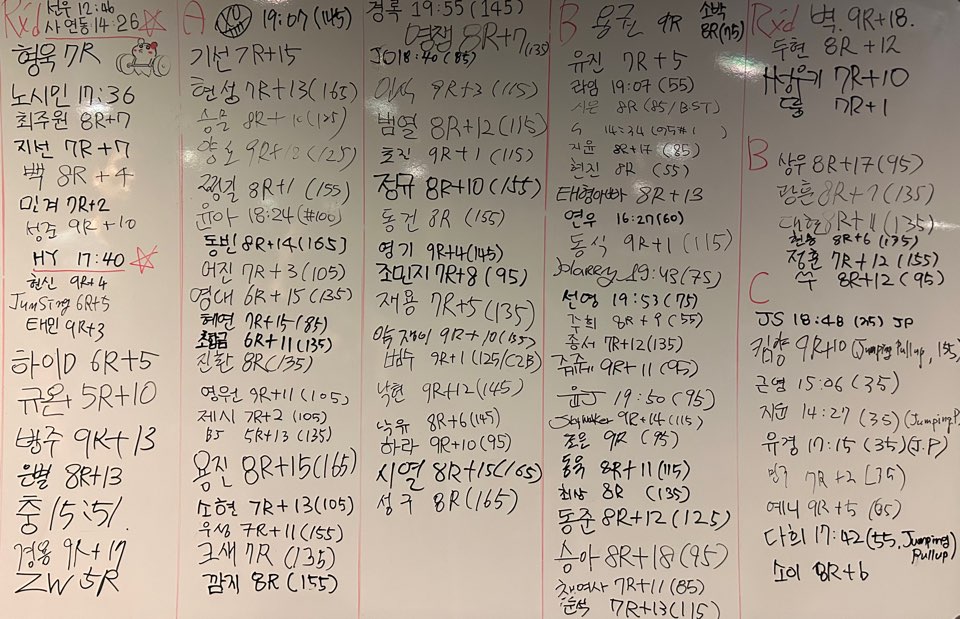 Rx'd
선우 12:46
사연동 14:26
형욱 7R
노시민 17:36
최주원 8R+7
지선 7R+7
백 8R+4
민겨 7R+2
성준 9R+10
HY 17:40
현신 9R+4
6R+5
태민 9R+3
하이D 6R+5
규온 5R+10
병주 9R+13
은별 8R+13
충 15:51
경용 9R+17
ZW 5R
A
19:07 (145)
기선 7R+15
현성 7R+13 (165)
8R+1
9R+13 (125)
8R+1 (155)
윤아 18:24 (#100)
동빈 8R+14 (165)
어진 7R+3 (105)
영대 6R+15 (135)
혜연 7R+15 (85)
6R+11 (135)
진환 8R (135)
영우원 9R+11 (105)
제시 7R+2 (105)
BJ 5R+13 (135)
용진 8R+15 (165)
소현 7R+13 (105)
우성 7R+11 (155)
크새 7R (135)
깜지 8R (155)
경록 19:55 (145)
8R+7 (135)
JO 18:40 (85)
9R+3 (115)
범열 8R+12 (115)
효진 9R+1 (115)
정규 8R+10 (155)
동건 8R (155)
영기 9R+4 (145)
조민지 7R+8 (95)
재용 7R+5 (135)
9R+10 (135)
범수 9R+1 (125/C2B)
낙현 9R+12 (145)
낙유 8R+6 (145)
하라 9R+10 (95)
시열 8R+15 (165)
성구 8R (165)
B
용권 9R
소박 8R (75)
유진 7R+5
라임 19:07 (55)
시은 8R (85/B.S.T)
지윤 8R+17 (85)
현진 8R (55)
태형아빠 8R+13
연우 16:27 (60)
동식 9R+1 (115)
Harry 19:43 (75)
선영 19:53 (75)
주희 8R+9 (55)
종서 7R+12 (135)
쥬쥬 9R+11 (95)
윤J 19:50 (95)
9R+14 (115)
조은 9R (95)
동욱 8R+11 (115)
최상 8R (135)
동준 8R+12 (125)
승아 8R+18 (95)
7R+11 (85)
윤석 7R+13 (115)
Rx'd
벽 9R+18
두현 8R+12
7R+10
7R+1
B
상우 8R+17 (95)
광훈 8R+7 (135)
대현 8R+11 (135)
현승 8R+6 (135)
정훈 7R+12 (155)
쑤 8R+12 (95)
C
JS 18:48 (25) JP
킴향 9R+10 (Jumping Pullup, 155)
근영 15:06 (35)
지윤 14:27 (35) (Jumping P
유경 17:15 (35) (J.P)
7R+2 (35)
예니 9R+5
다희 17:42 (55, Jumping Pullup)
소이 8R+6